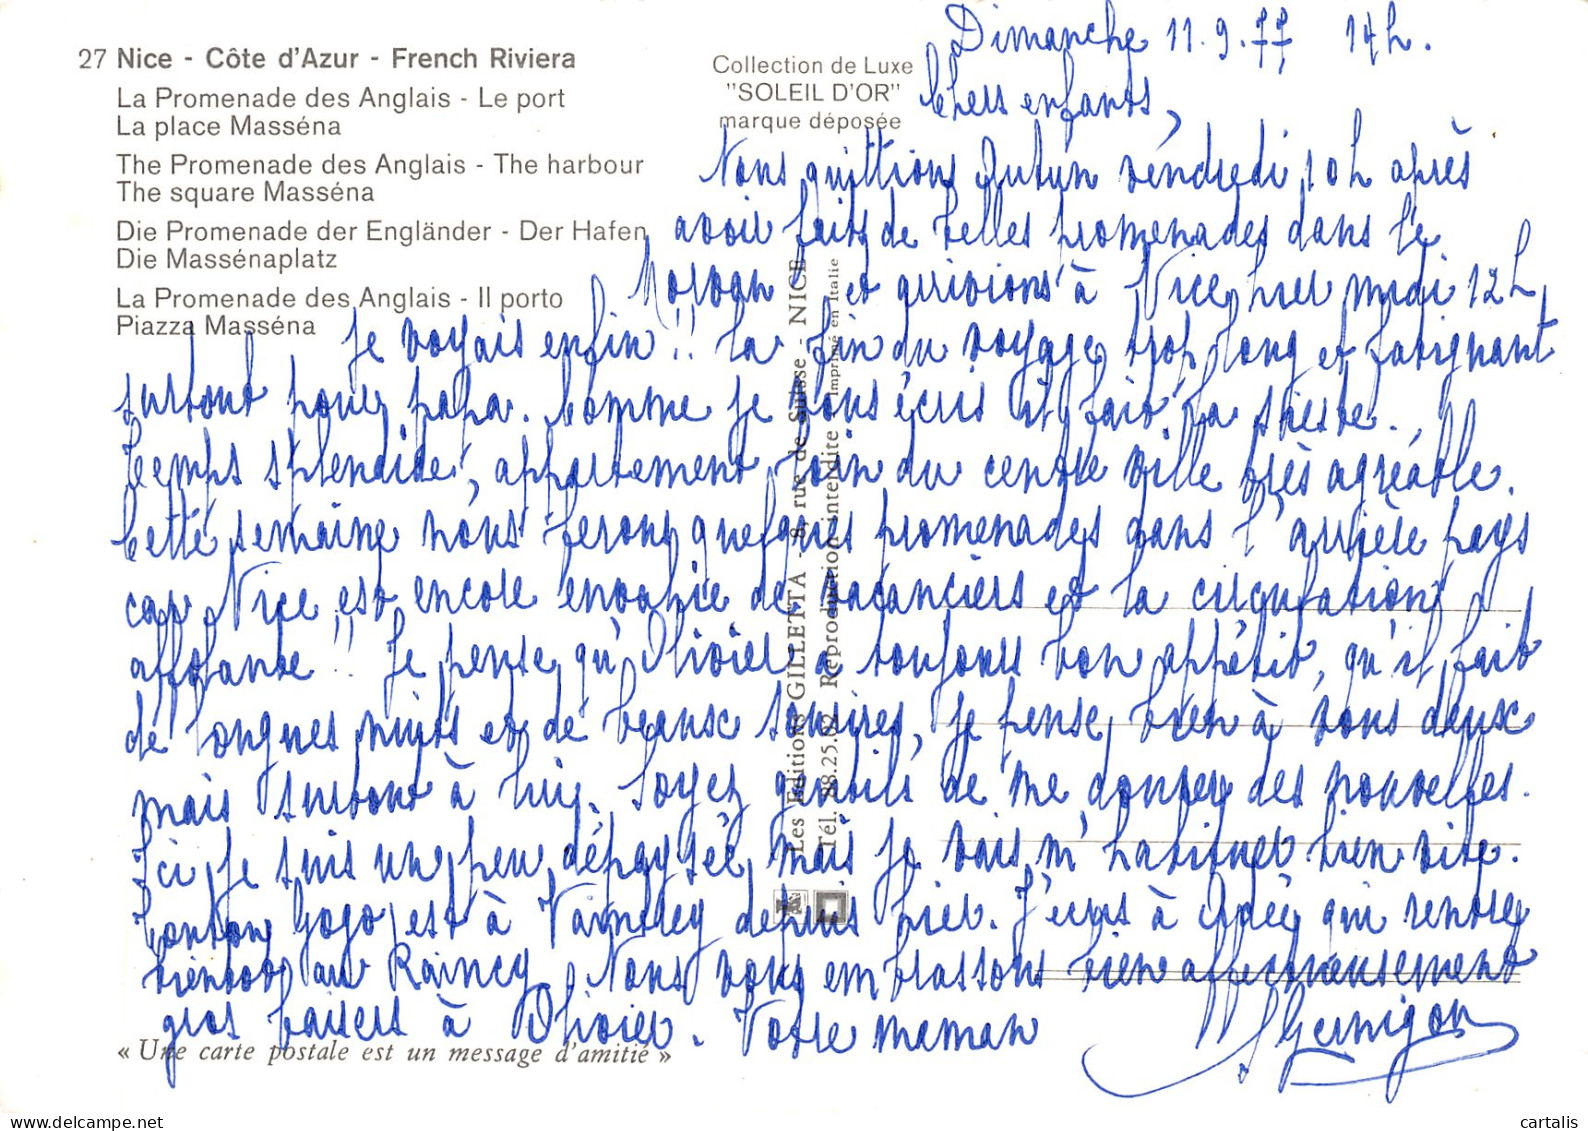 27 Nice - Côte d'Azur - French Riviera
La Promenade des Anglais - Le port
La place Masséna
The Promenade des Anglais - The harbour
The square Masséna
Die Promenade der Engländer - Der Hafen
Die Massénaplatz
La Promenade des Anglais - Il porto
Piazza Masséna
Collection de Luxe
"SOLEIL D'OR"
marque déposée
Dimanche 11.9.77 14h.
Chers enfants,
Nous quittions Autun vendredi 10h après
avoir faits de belles promenades dans le
Morvan et arrivions à Nice hier midi 12h
Je voyais enfin!! la fin du voyage trop long et fatignant
surtout pour papa. Comme je vous écris il fait la sieste.
Temps splendide, appartement loin du centre ville très agréable.
Cette semaine nous ferons quelques promenades dans l'arrière pays
car Nice est encore envahie de vacanciers et la circulation
affolante!! Je pense qu'Olivier a toujours bon appétit, qu'il fait
de longues nuits et de beaux sourires, je pense bien à vous deux
mais surtout à lui. Soyez gentils de me donner des nouvelles.
Ici je suis un peu dépaysée mais je vais m'habituer bien vite.
Tonton Gogo est à depuis hier. J'écris à qui rentre
bientot au Raincy. Nous vous embrassons bien affectueusement
gros baisers à Olivier. Votre maman
Les Editions GILLETTA - 8, rue de Suisse - NICE
Tél. 88.25.02 Reproduction interdite Imprimé en Italie
« Une carte postale est un message d'amitié »
cartalis